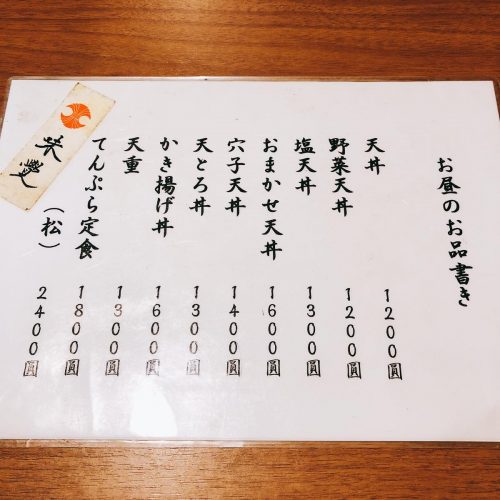 お昼のお品書き
天丼 1200圓
野菜天丼 1200圓
塩天丼 1300圓
おまかせ天丼 1600圓
穴子天丼 1400圓
天とろ丼 1300圓
かき揚げ丼 1600圓
天重 1300圓
てんぷら定食 1800圓
(松) 2400圓
味覺